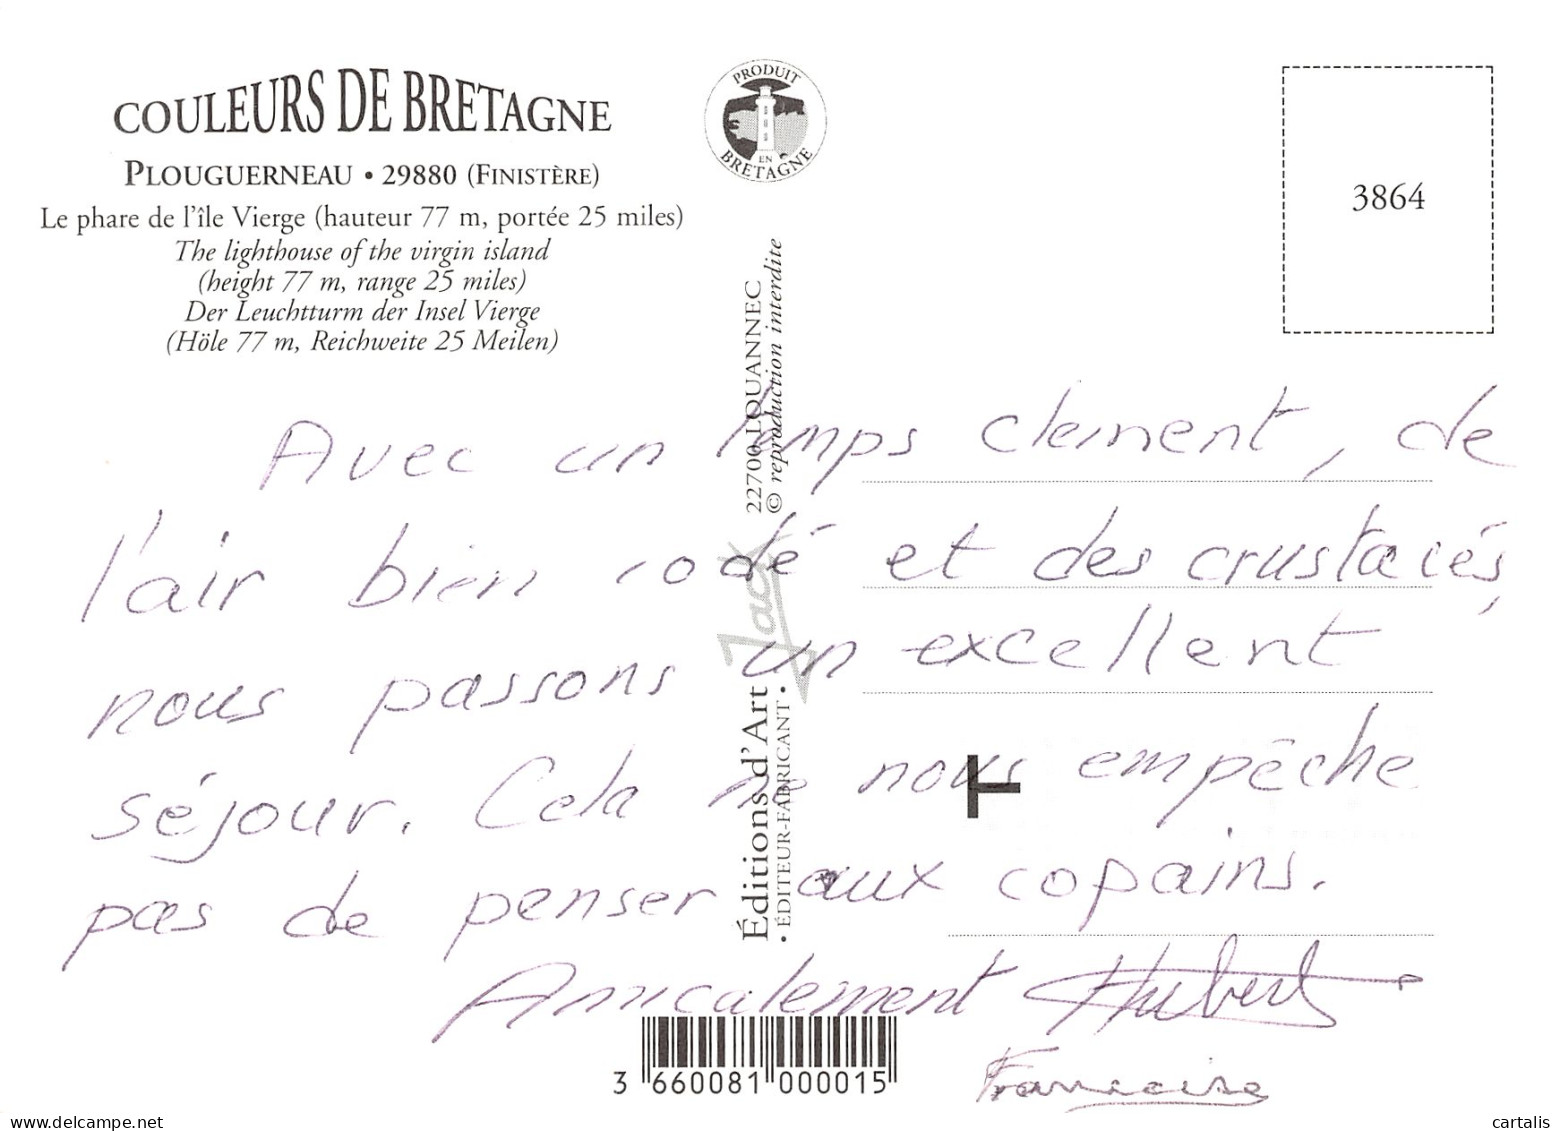 COULEURS DE BRETAGNE
PLOUGUERNEAU • 29880 (FINISTÈRE)
Le phare de l'île Vierge (hauteur 77 m, portée 25 miles)
The lighthouse of the virgin island
(height 77 m, range 25 miles)
Der Leuchtturm der Insel Vierge
(Höle 77 m, Reichweite 25 Meilen)
PRODUIT
EN
BRETAGNE
3864
Éditions d'Art Jack 22700 LOUANNEC
• ÉDITEUR-FABRICANT • © reproduction interdite
Avec un temps clement, de
l'air bien iodé et des crustacés,
nous passons un excellent
séjour. Cela ne nous empêche
pas de penser aux copains.
Amicalement Hubert
Francoise
T
3 660081 000015
delcampe.net
cartalis